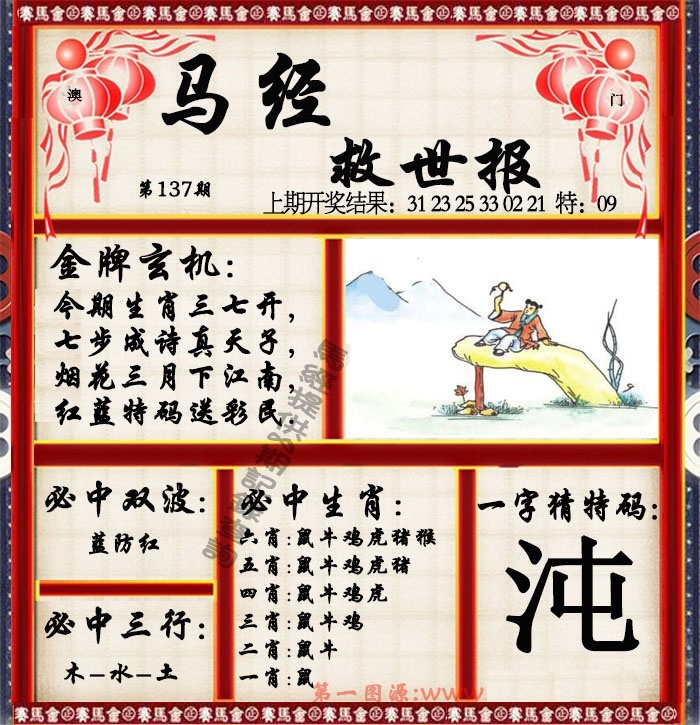 賽馬會 賽馬會 賽馬會 賽馬會 賽馬會 賽馬會 賽馬會 賽馬會
澳
门
马经
救世报
第137期
上期开奖结果：31 23 25 33 02 21 特：09
金牌玄机：
今期生肖三七开，
七步成诗真天子，
烟花三月下江南，
红蓝特码送彩民.
必中双波：
蓝防红
必中三行：
木-水-土
必中生肖：
六肖:鼠牛鸡虎猪猴
五肖:鼠牛鸡虎猪
四肖:鼠牛鸡虎
三肖:鼠牛鸡
二肖:鼠牛
一肖:鼠
一字猜特码：
沌
第一图源:www